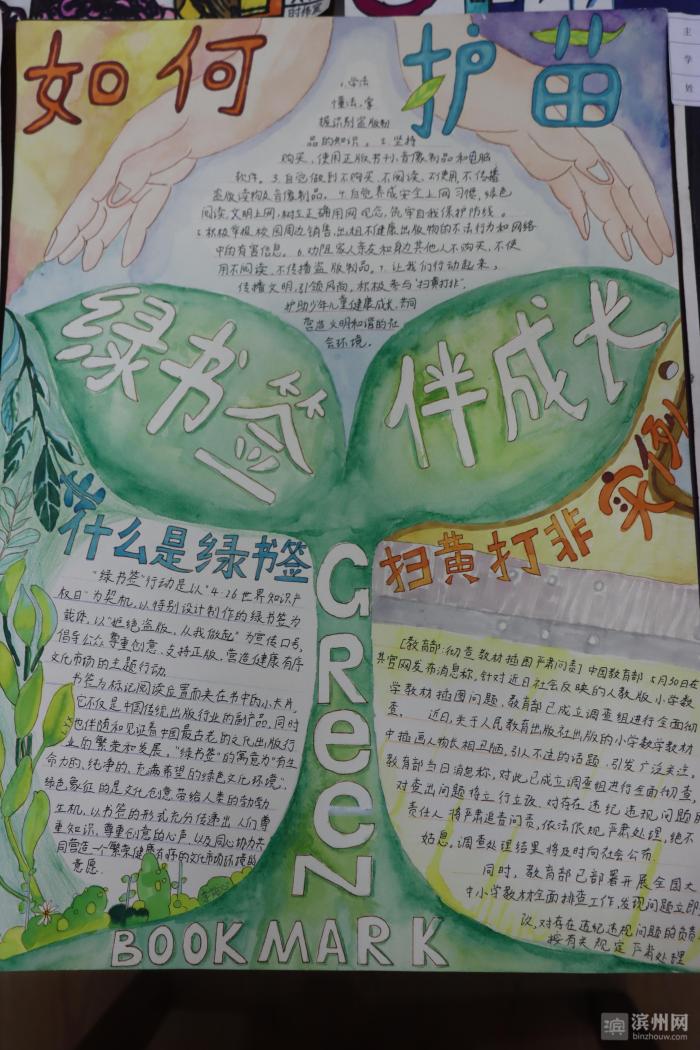 如何护苗
1.学法
懂法,掌
握识别盗版制
品的知识。2.坚持
购买,使用正版书刊,音像制品和电脑
软件。3.自觉做到不购买,不阅读,不使用,不传播
盗版读物及音像制品。4.自觉养成安全上网习惯,绿色
阅读,文明上网,树立正确用网观念,筑牢自我保护防线。
5.积极举报校园周边销售,出租不健康出版物的不法行为和网络
中的有害信息。6.劝阻家人亲友和身边其他人不购买,不使
用不阅读,不传播盗版制品。7.让我们行动起来,
传播文明,引领风尚,积极参与"扫黄打非",
护助少年儿童健康成长,共同
营造文明和谐的社
会环境。
绿书签
伴成长
什么是绿书签
"绿书签"行动是以"4·26世界知识产
权日"为契机,以特别设计制作的绿书签为
载体,以"拒绝盗版,从我做起"为宣传口号,
倡导公众尊重创意、支持正版,营造健康有序
文化市场的主题行动。
书签为标记阅读位置而夹在书中的小卡片。
它不仅是中国传统出版行业的副产品,同时
也伴随和见证着中国最古老的文化出版行
业的繁荣和发展。"绿书签"的寓意为"有生
命力的,纯净的,充满希望的绿色文化环境",
绿色象征的是文化创意带给人类的勃勃
生机,以书签的形式充分传递出人们尊
重知识,尊重创意的心声,以及同心协力共
同营造一个繁荣健康有序的文化市场环境的
意愿.
扫黄打非
实例
[教育部:彻查教材插图严肃问责]中国教育部5月30日在
其官网发布消息称,针对近日社会反映的人教版小学数
学教材插图问题,教育部已成立调查组进行全面彻
查。近日,关于人民教育出版社出版的小学数学教材
中插画人物长相丑陋,引人不适的话题,引发广泛关注,
教育部当日消息称,对此已成立调查组进行全面彻查。
对查出问题将立行立改,对存在违纪违规问题的
责任人将严肃追责问责,依法依规严肃处理,绝不
姑息。调查处理结果将及时向社会公布.
同时,教育部已部署开展全国大
中小学教材全面排查工作,发现问题立即
改,对存在违纪违规问题的负责
按有关规定严肃处理
GReeN
BOOKMARK
主
学
姓
滨州网
binzhouw.com